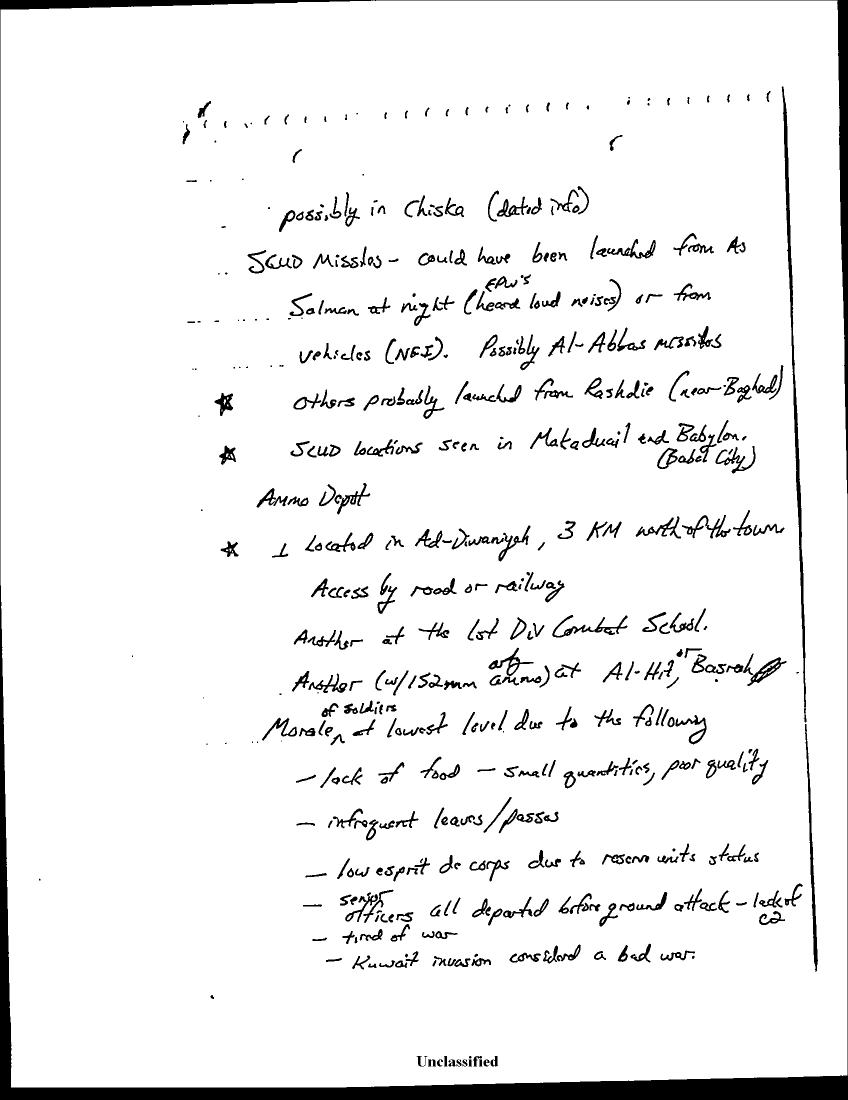 possibly in Chiska (dated info)
SCUD Missles - could have been launched from As
Salman at night (EPW's heard loud noises) or from
vehicles (NFI). Possibly Al-Abbas missiles
☆ others probably launched from Rashdie (near Baghad)
☆ SCUD locations seen in Makaduail and Babylon.
(Babel City)
Ammo Depot
☆ 1 Located in Ad-Diwaniyah, 3 KM north of the town
Access by road or railway
Another at the 1st Div Combat School.
Another (w/152mm arty ammo) at Al-Hit, or Basrah
Morale of soldiers at lowest level due to the following
- lack of food - small quantities, poor quality
- infrequent leaves/passes
- low esprit de corps due to reserve units status
- senior officers all departed before ground attack - lack of
C2
- tired of war
- Kuwait invasion considered a bad war.
Unclassified